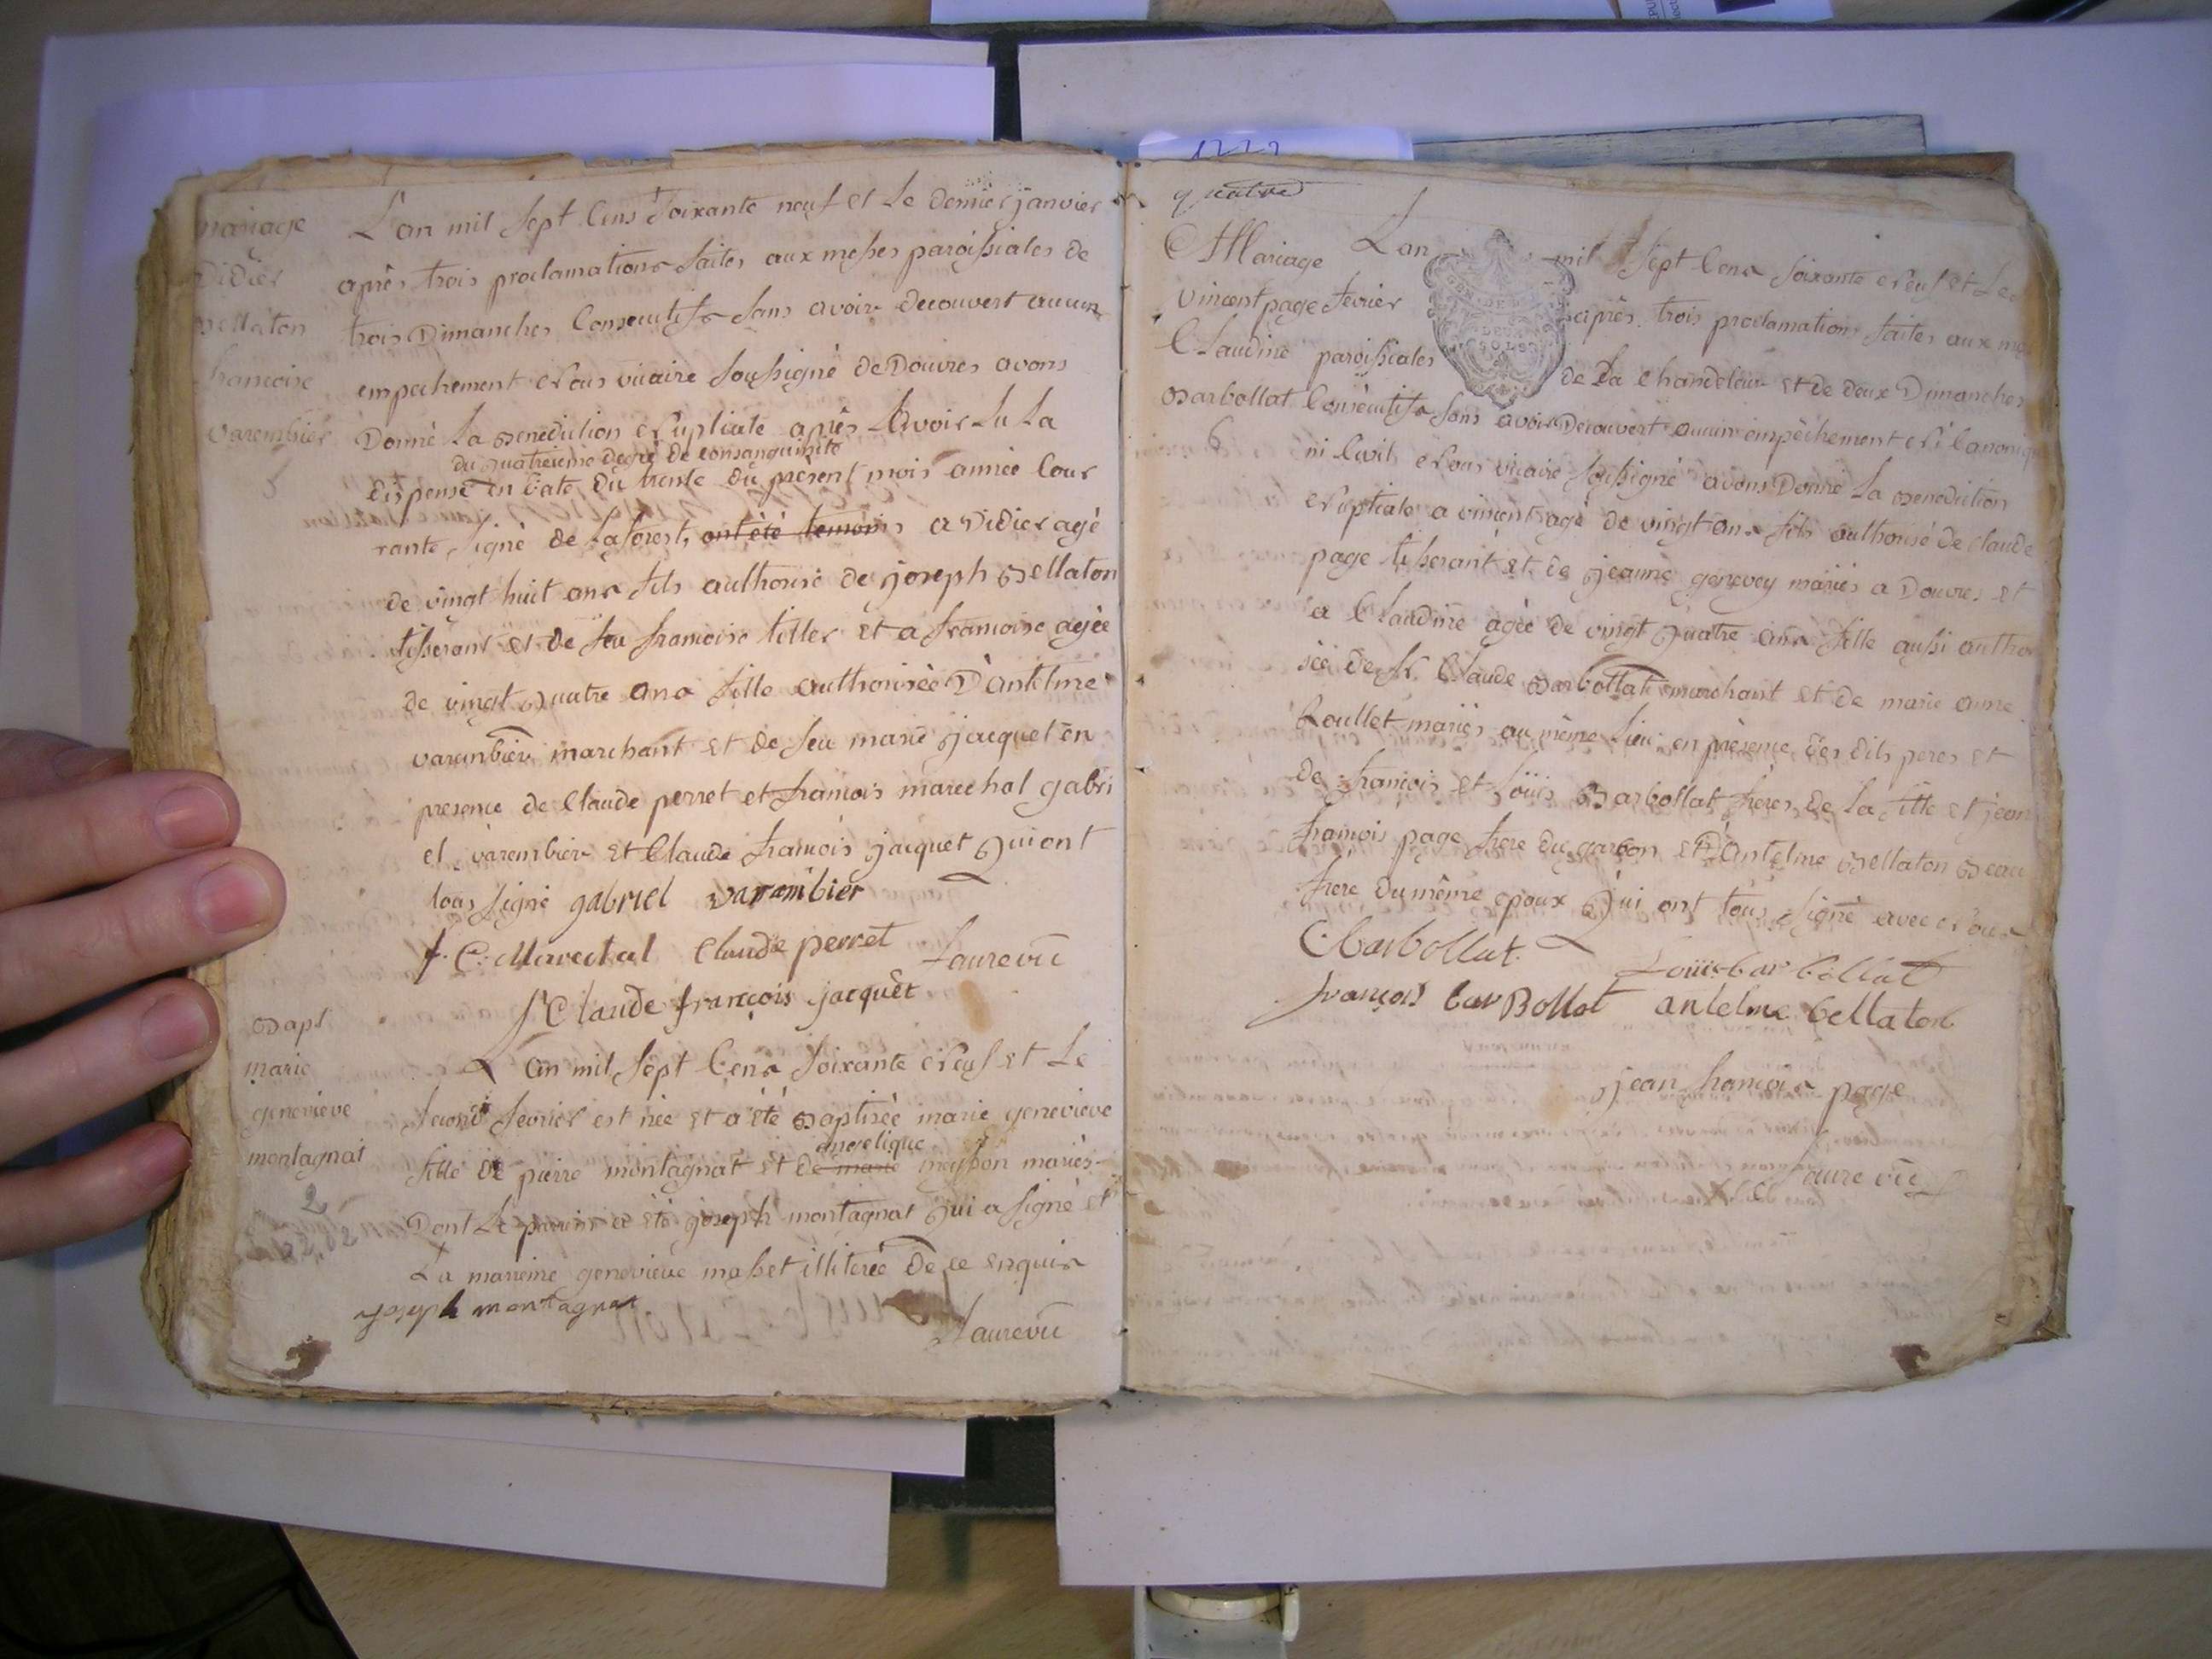 mariage
Didier
Bellaton
françoise
varembier
5
L'an mil sept Cens soixante neuf et Le dernier janvier
après trois proclamations faites aux messes paroissiales de
trois Dimanches Consecutifs sans avoir decouvert aucun
empechement Nous vicaire soussigné de Douvres avons
Donné La Benediction Nuptiale après Avoir Lu La
du quatrieme degré de consanguinité
dispense en date du trente du present mois année Cour
rante, signé de Laforest, ont été temoins a Didier agé
de vingt huit ans fils authorisé de joseph Bellaton
tisserant et de feu françoise tiller et a françoise agée
de vingt quatre ans fille authorisée D'antelme
varambier marchant et de feu marie jacquet en
presence de Claude perret et françois marechal gabri
el varembier et Claude françois jacquet qui ont
tous signé gabriel varambier
f. C. Marechal Claude perret Faure vic
Claude françois jacquet
Bapt
marie
genevieve
montagnat
2
L'an mil sept Cens soixante Neuf et Le
second fevrier est née et a été Baptisée marie genevieve
angelique
fille de pierre montagnat et de marie meysson mariés
Dont Le parrin a été joseph montagnat qui a signé et
La marreine genevieve masset illiterée de ce enquis
joseph montagnat
Faure vic
quatre
1772
Mariage
vincent page
Claudine
Barbollat
6
GEN. DE
DEUX
SOLS
L'an mil sept Cens soixante Neuf et Le
fevrier après trois proclamations faites aux
paroissiales de La Chandeleur et de deux Dimanches
Consécutifs sans avoir Decouvert aucun empêchement Ni Canonique
ni Civil Nous vicaire soussigné avons Donné La Benediction
Nuptiale a vincent agé de vingt ans fils authorisé de claude
page tisserant et de jeanne genevey mariés a Douvres et
a Claudine agée de vingt quatre ans fille aussi authori
sée de sr Claude Barbollat marchant et de marie anne
Roullet mariés au même Lieu en présence des dits peres et
de françois et Loüis Barbollat freres de La fille et jean
françois page frere du garçon et D'antelme Bellaton Beau
frere du même epoux qui ont tous signé avec Nous
C Barbollat. Loüis barbollat
françois barBollat antelme bellaton
jean françois page
Faure vic